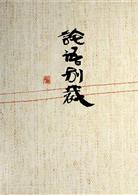 論語別裁